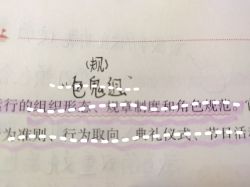 (规)
包鬼组
行的组织形态、规章制度和角色规范。
为准则、行为取向、典礼仪式、节日活